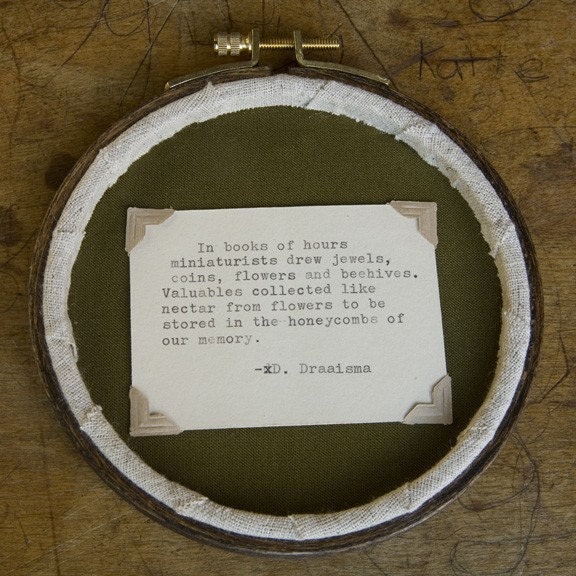 Katie
In books of hours
miniaturists drew jewels,
coins, flowers and beehives.
Valuables collected like
nectar from flowers to be
stored in the honeycombs of
our memory.
-xD. Draaisma